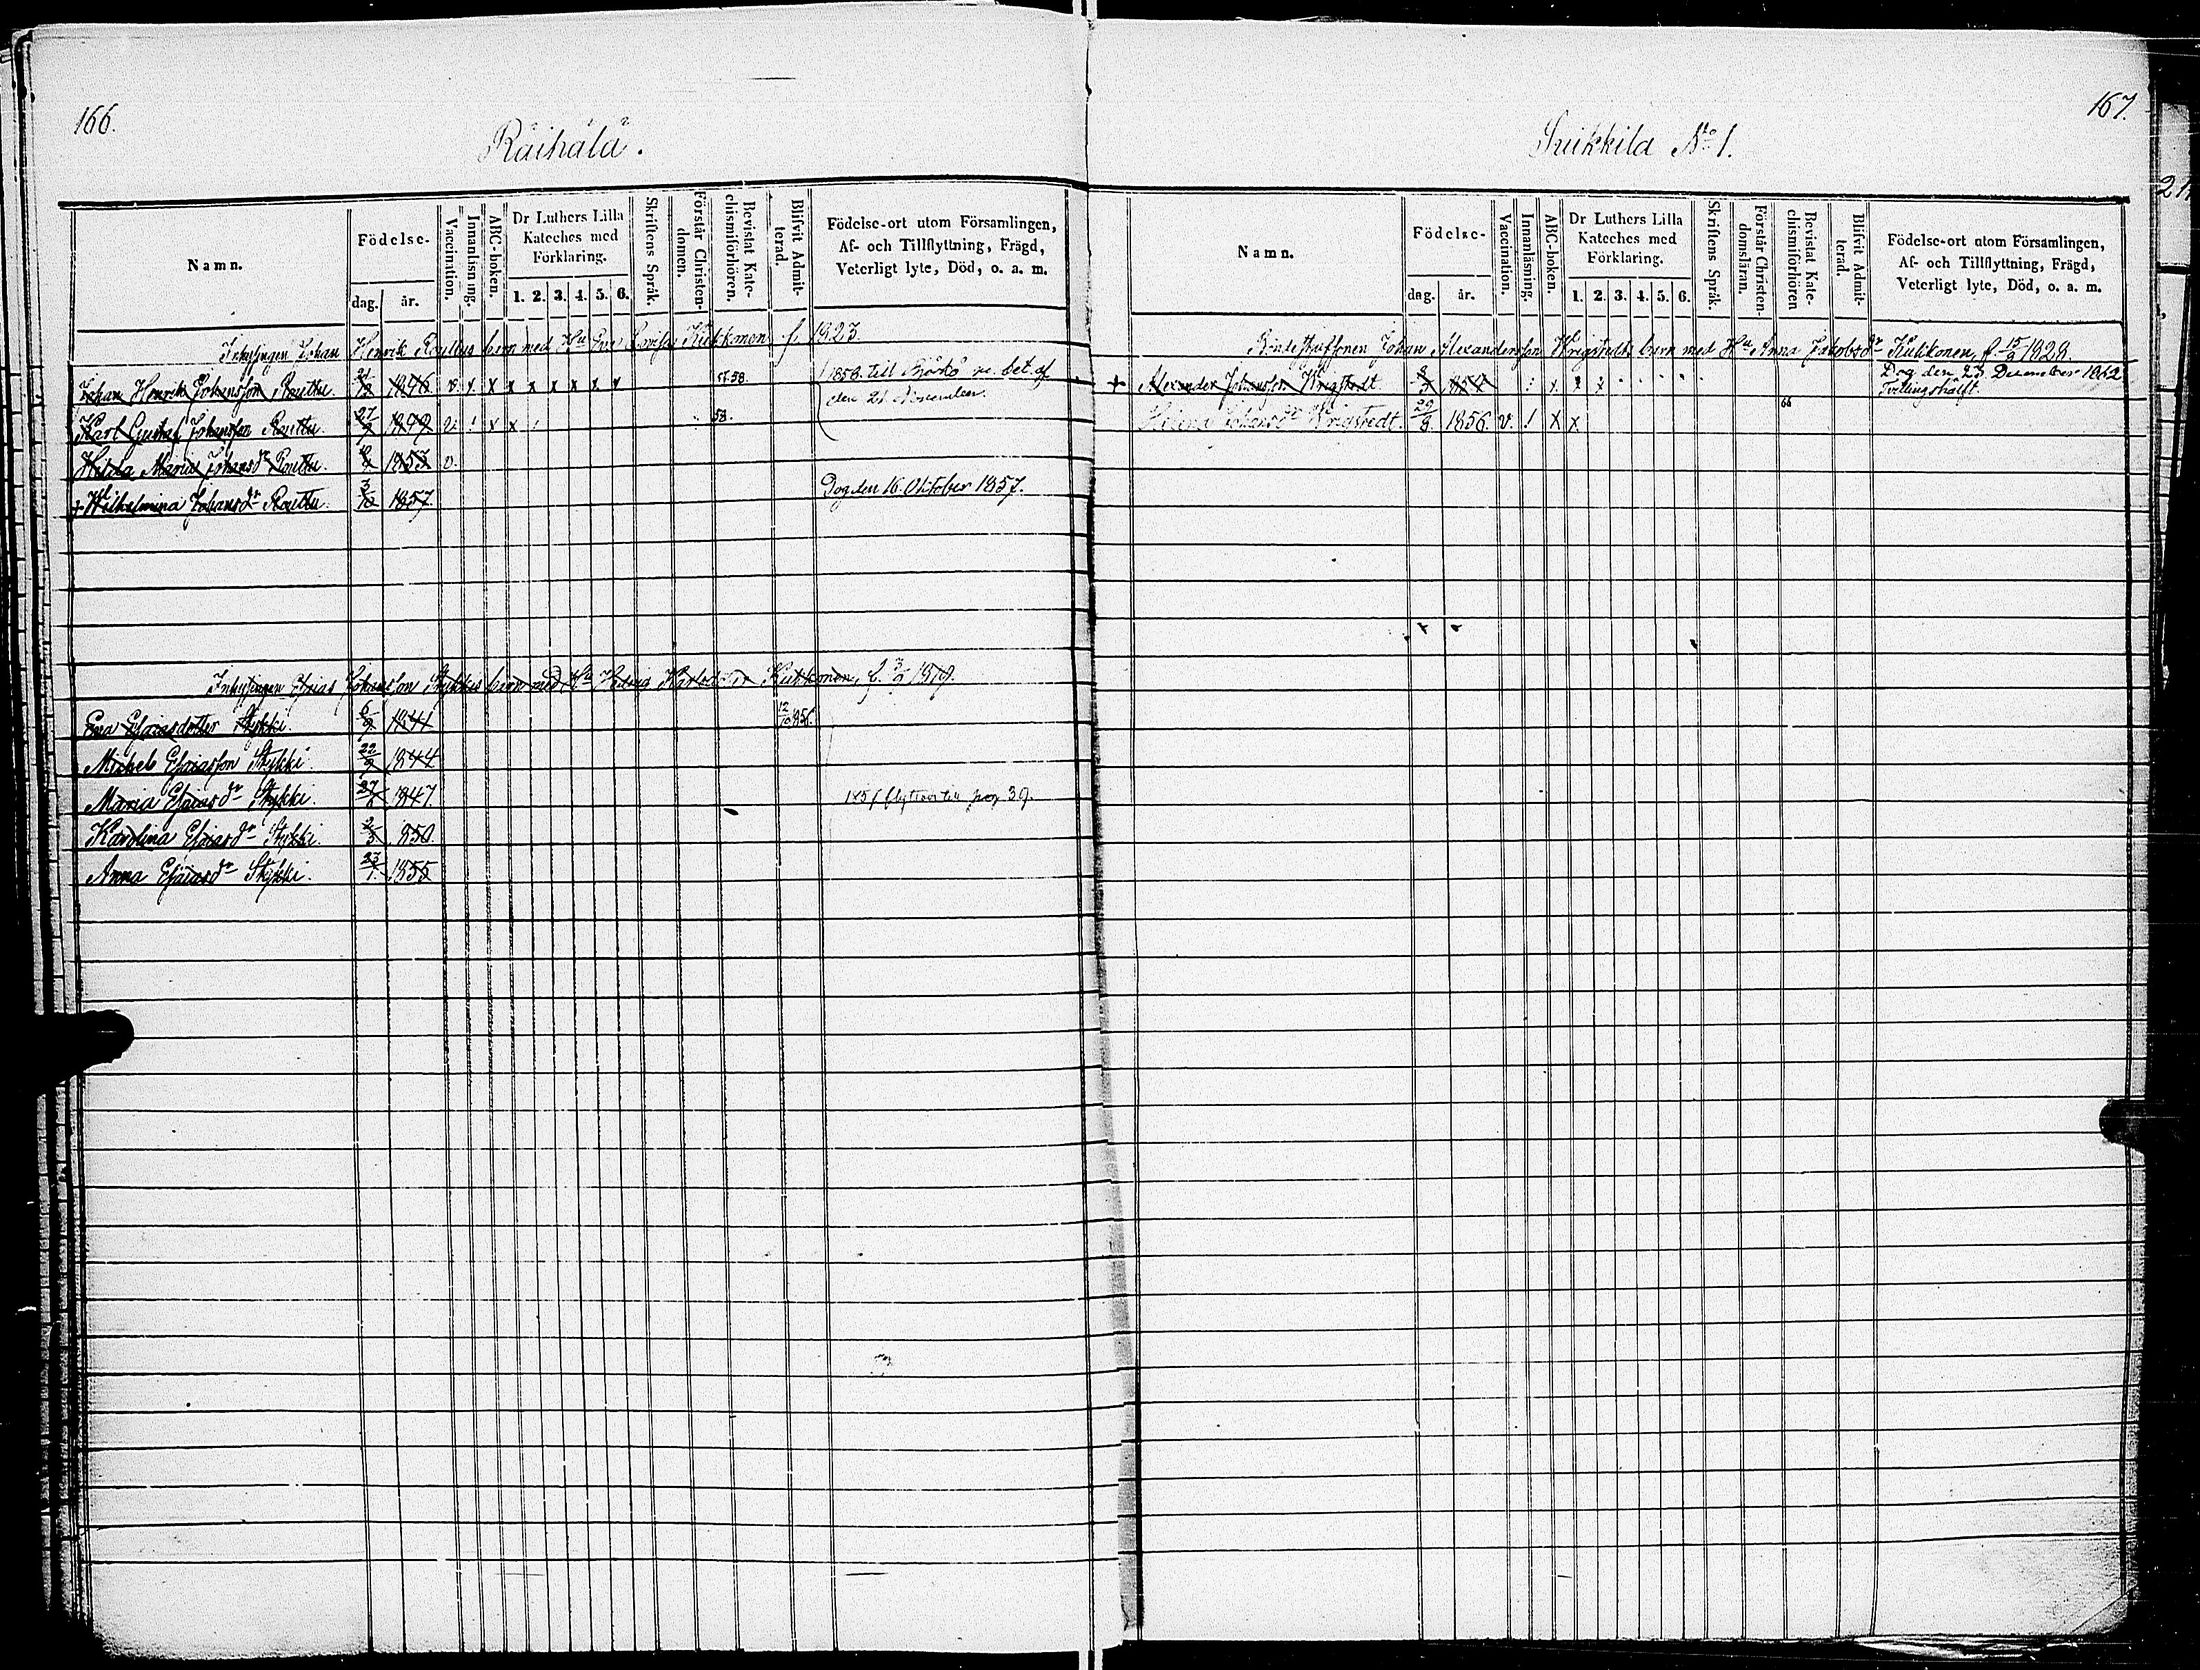 166.
Räihälä.
Namn.
Födelse-
dag. år.
Vaccination.
Innanläsning.
ABC-boken.
Dr Luthers Lilla Kateches med Förklaring.
1. 2. 3. 4. 5. 6.
Skriftens Språk.
Förstår Christen-domen.
Bevistat Kate-chismiförhören.
Blifvit Admit-terad.
Födelse-ort utom Församlingen,
Af- och Tillflyttning, Frägd,
Veterligt lyte, Död, o. a. m.
Inhysingen Johan Henrik barn med Hu Eva Lovisa Kukkonen f. 1823.
Johan Henrik Johansson Routtu. 1846 v. x x x x x x x x 57.58. 1858 till Björkö se bet. af
Karl Gustaf Johansson Routtu. 27/7 1849 v. ! x x ! 58. den 21 November.
Hilda Maria Johansdr Routtu. 1853 v.
+ Wilhelmina Johansdr Routtu. 3/10 1857. Dog den 16. Oktober 1857.
Inhysingen Esaias Johansson Stykkis barn med Hu Hedvig Karlsdotter Kukkonen, f. 1819.
Eva Esaiasdotter Stykki. 6/9 1841 12/10 856.
Michel Esaiasson Stykki. 22/9 1844
Maria Esaiasdr Stykki. 1847. flyttat till pag. 39.
Karolina Esaiasdr Stykki. 2/5 1850.
Anna Esaiasdr Stykki. 23/7 1855
167.
Suikkila No 1.
Namn.
Födelse-
dag. år.
Vaccination.
Innanläsning.
ABC-boken.
Dr Luthers Lilla Kateches med Förklaring.
1. 2. 3. 4. 5. 6.
Skriftens Språk.
Förstår Christen-domsläran.
Bevistat Kate-chismiförhören
Blifvit Admit-terad.
Födelse-ort utom Församlingen,
Af- och Tillflyttning, Frägd,
Veterligt lyte, Död, o. a. m.
Johan Alexandersson Wrigstedts barn med Hu Anna Jakobsdr Kukkonen, f. 15/9 1828.
+ Alexander Johansson Wrigstedt 1854 Dog den 23 December 1862
Tvillingshälft.
Helena Johansdr Wrigstedt. 29/8 1856. v. ! x x 66